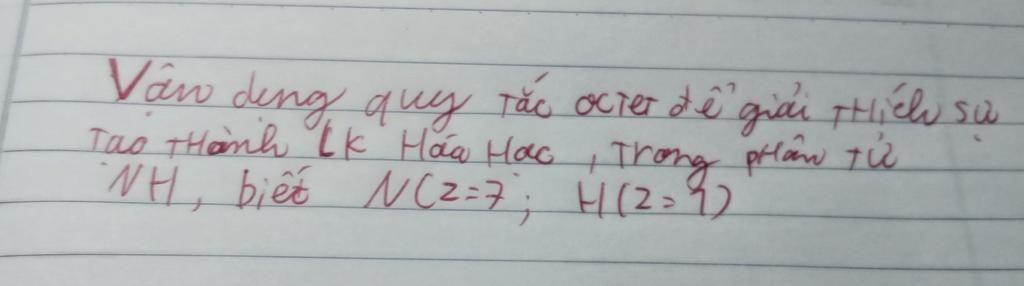 Vận dụng quy tắc octet để giải thích sự
tạo thành LK Hóa Học, trong phân tử
NH, biết N(Z=7; H(Z=1)